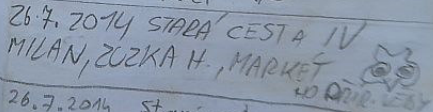 26.7. 2014 STARÁ CESTA IV
MILAN, ZUZKA H., MARKÉT
26.7.2014